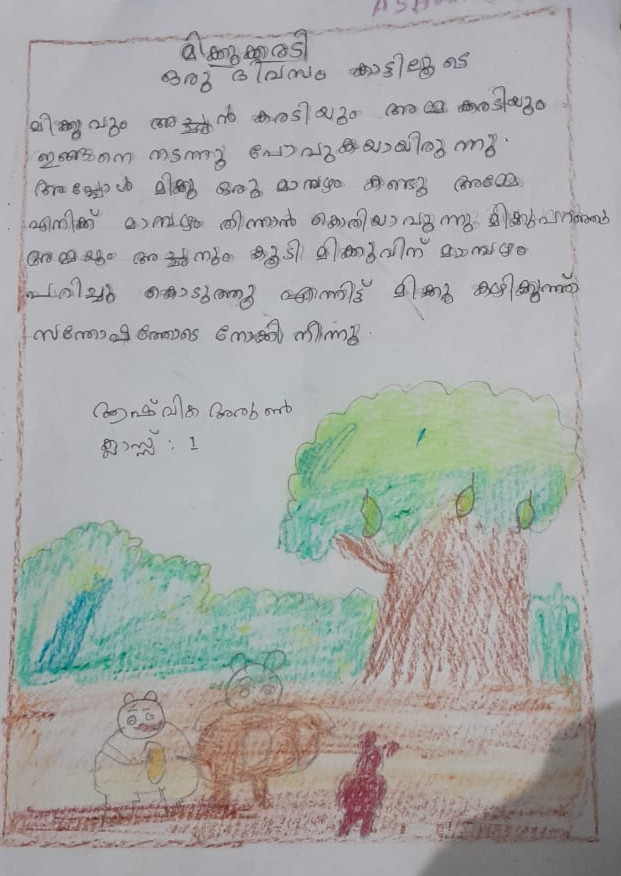 മിക്കുക്കരടി
ഒരു ദിവസം കാട്ടിലൂടെ
മിക്കുവും അച്ഛൻ കരടിയും അമ്മ കരടിയും
ഇങ്ങനെ നടന്നു പോവുകയായിരുന്നു.
അപ്പോൾ മിക്കു ഒരു മാമ്പഴം കണ്ടു അമ്മേ
എനിക്ക് മാമ്പഴം തിന്നാൻ കൊതിയാവുന്നു മിക്കു പറഞ്ഞു
അമ്മയും അച്ഛനും കൂടി മിക്കുവിന് മാമ്പഴം
പറിച്ചു കൊടുത്തു എന്നിട്ട് മിക്കു കഴിക്കുന്നത്
സന്തോഷത്തോടെ നോക്കി നിന്നു.
ആഷ്‌വിക അരുൺ
ക്ലാസ്സ് : 1